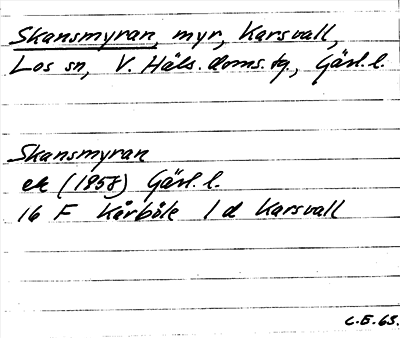 Skansmyran, myr, Karsvall,
Los sn, V. Häls. doms. tg, Gävl. l.
Skansmyran
ek (1958) Gävl. l.
16 F Kårböle 1 d Karsvall
C.E. 63.